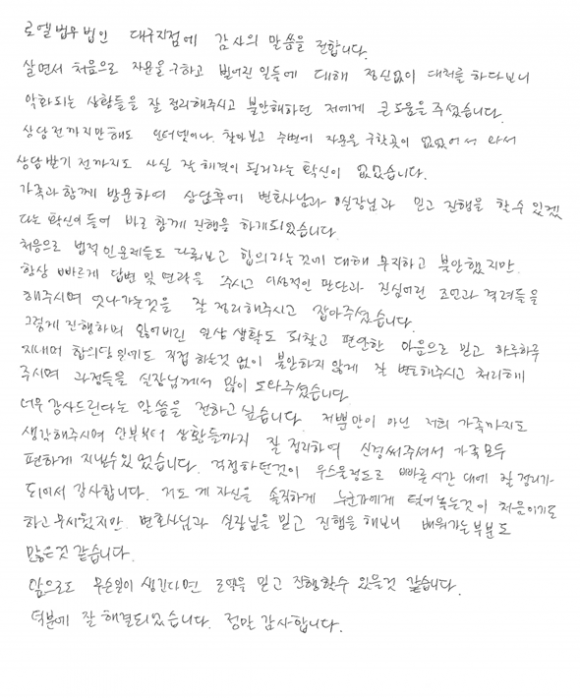 로엘법무법인 대구지점에 감사의 말씀을 전합니다.
살면서 처음으로 자문을 구하고 벌어진 일들에 대해 정신없이 대처를 하다보니
악화되는 상황들을 잘 정리해주시고 불안해하던 저에게 큰 도움을 주셨습니다.
상담 전까지만해도 인터넷이나 찾아보고 주변에 자문을 구할곳이 없었어서 와서
상담받기 전까지도 사실 잘 해결이 될거라는 확신이 없었습니다.
가족과 함께 방문하여 상담후에 변호사님과 실장님과 믿고 진행을 할 수 있겠
다는 확신이 들어 바로 함께 진행을 하게되었습니다.
처음으로 법적인 문제들도 다뤄보고 합의라는것에 대해 무지하고 불안했지만.
항상 빠르게 답변 및 연락을 주시고 이상적인 판단과 진심어린 조언과 격려들을
해주시며 엇나가는것을 잘 정리해주시고 잡아주셨습니다.
그렇게 진행하며 잃어버린 일상 생활도 되찾고 편안한 마음으로 믿고 하루하루
지내며 합의당일에도 직접 하는것 없이 불안하지 않게 잘 변호해주시고 처리해
주시며 과정들을 실장님께서 많이 도와주셨습니다.
너무 감사드린다는 말씀을 전하고 싶습니다. 저뿐만이 아닌 저희 가족까지도
생각해주시며 안부부터 상황들까지 잘 정리하여 신경써주셔서 가족모두
편하게 지낼수 있었습니다. 걱정하던것이 우스울정도로 빠른시간 대에 잘 정리가
되어서 감사합니다. 저도 제 자신을 솔직하게 누군가에게 털어놓는것이 처음이기도
하고 무서웠지만. 변호사님과 실장님을 믿고 진행을 해보니 배워가는 부분도
많은것 같습니다.
앞으로도 무슨일이 생긴다면 로엘을 믿고 진행할수 있을것 같습니다.
덕분에 잘 해결되었습니다. 정말 감사합니다.